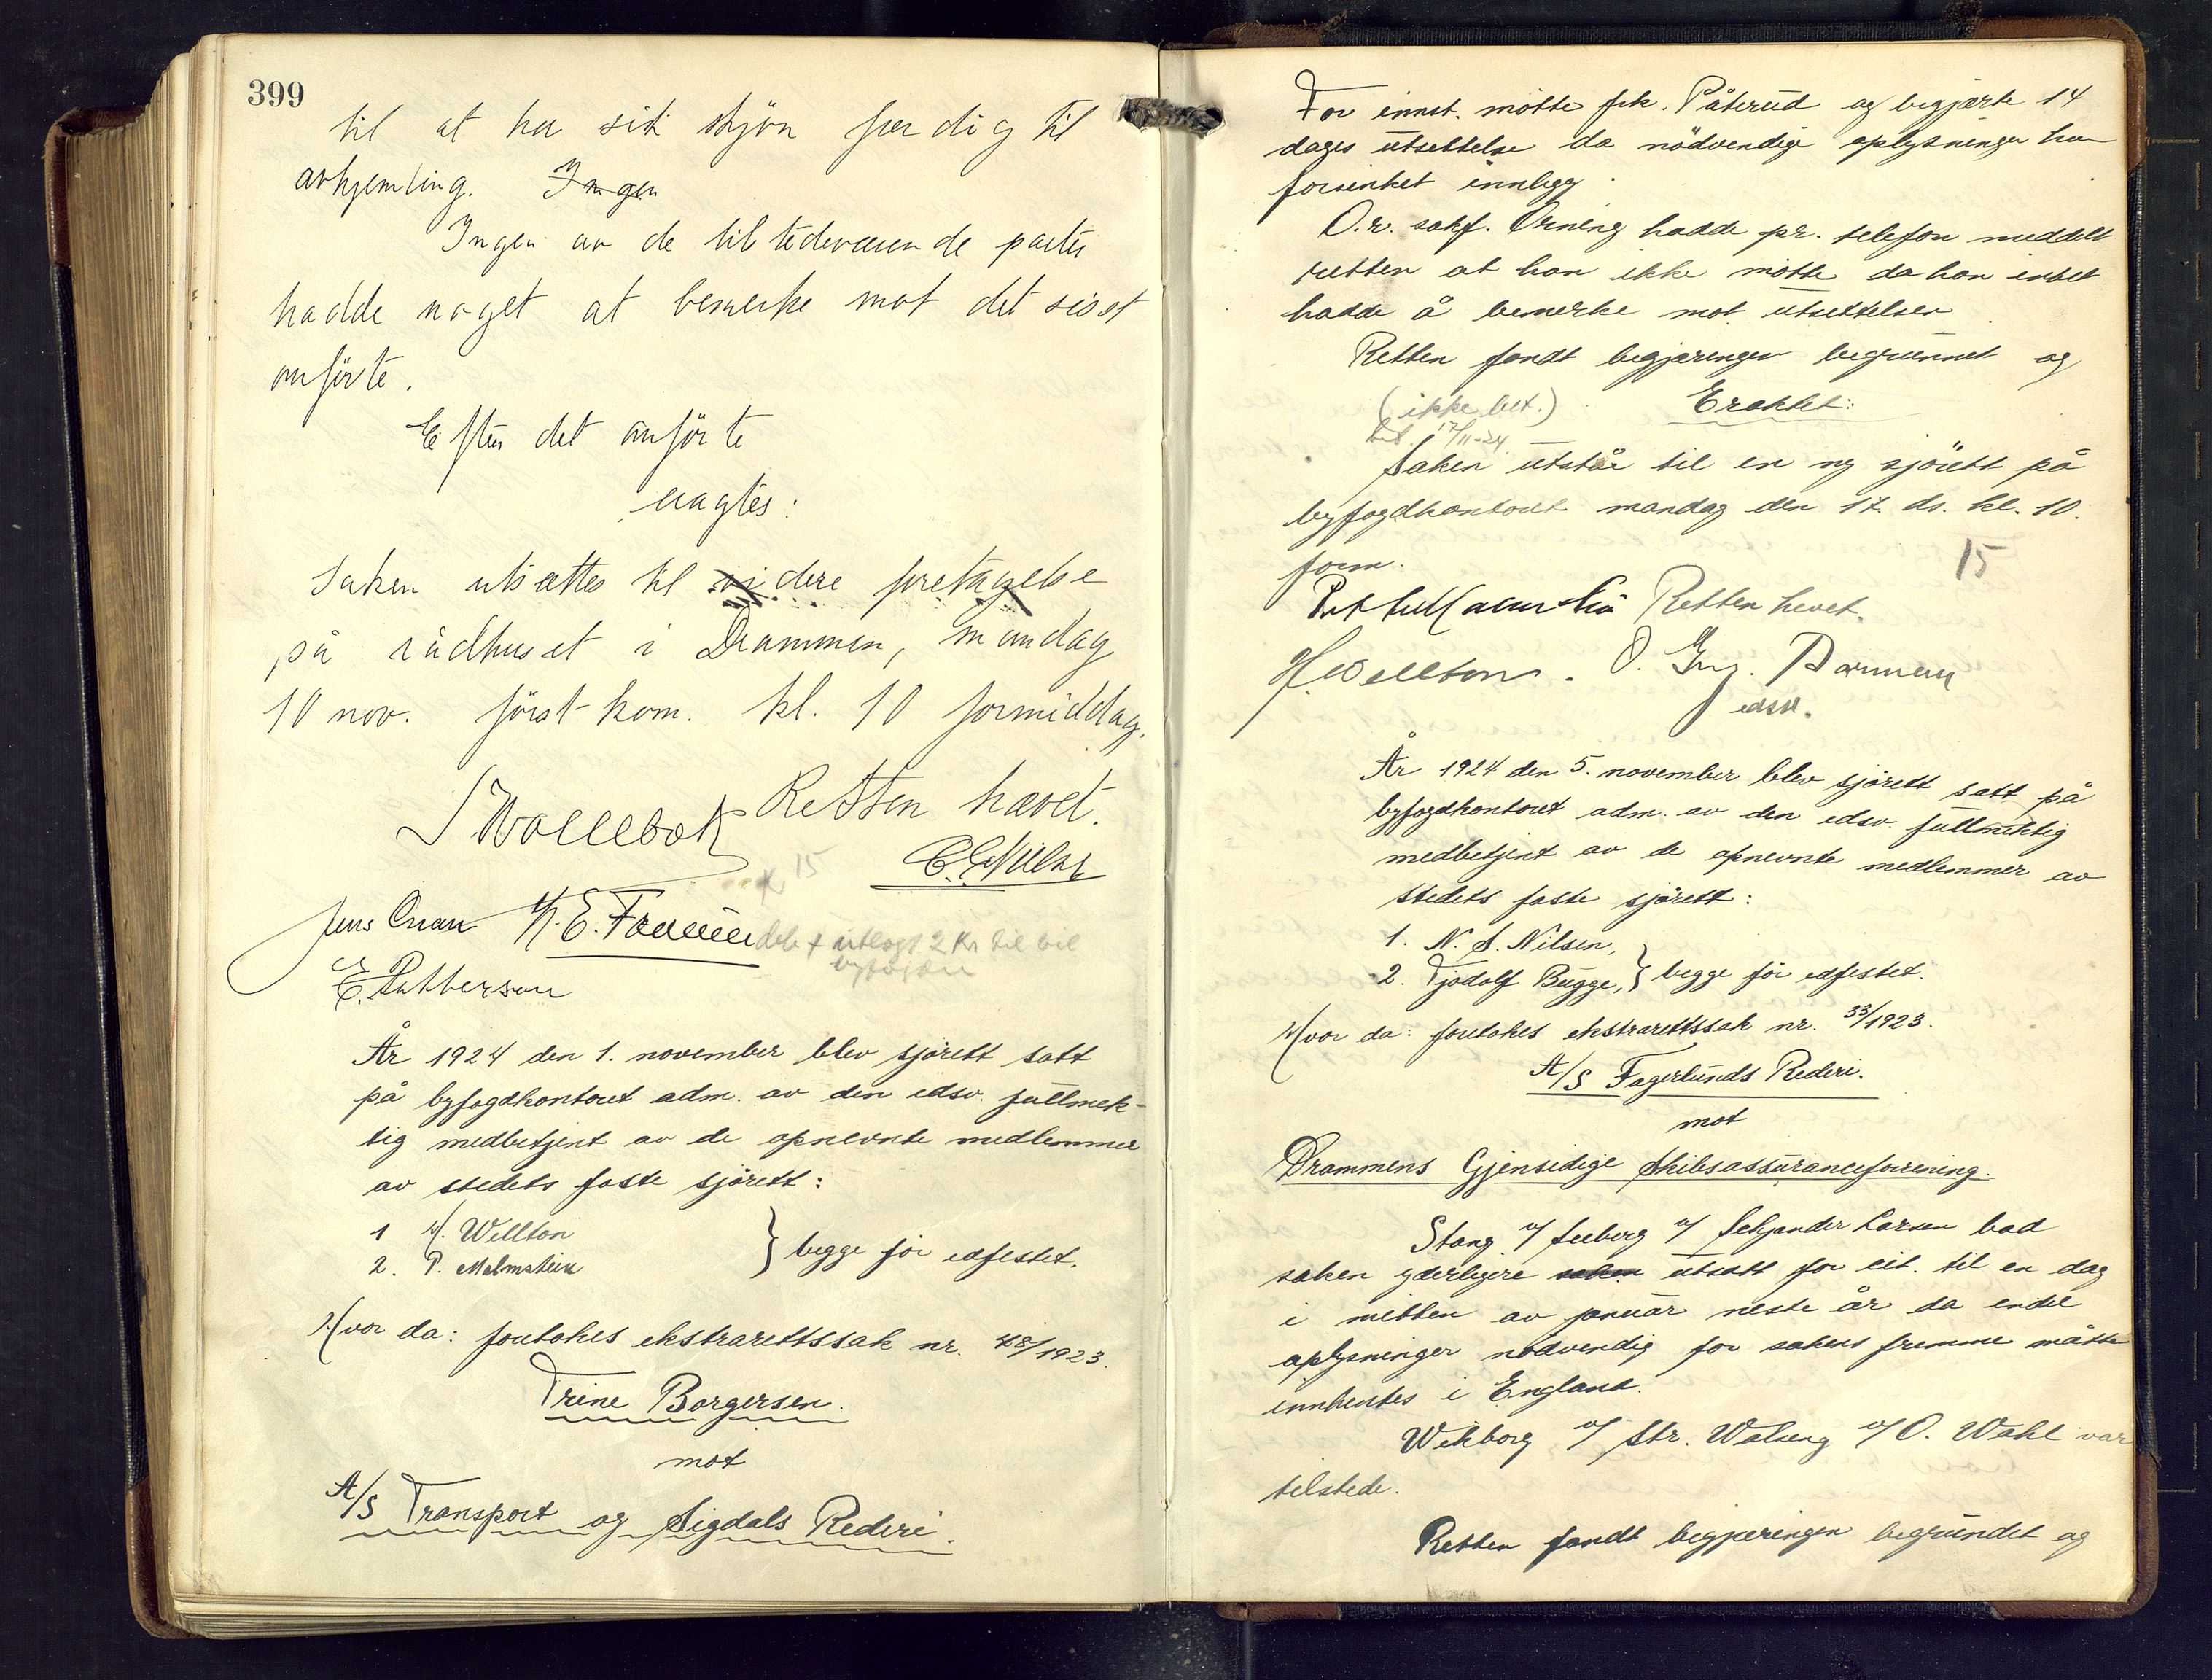 399
til at ha sit skjön færdig til
avhjemling. Ingen
Ingen av de tilstedeværende parter
hadde noget at bemerke mot det sisst
anförte.
Efter det anförte
vagtes:
Saken utsættes til videre foretagelse
på rådhuset i Drammen, mandag
10 nov. först kom. kl. 10 formiddag.
Retten hævet.
S Wollebæk
Jens Omar
E. Pettersen
År 1924 den 1. november blev sjørett satt
på byfogdkontoret adm. av den edsv. fullmek-
tig medbetjent av de opnevnte medlemmer
av stedets faste sjørett:
1 H. Wellton
2. P. Malmstein } begge før edfestet.
Hvor da: foretokes ekstrarettssak nr. 48/1923.
Trine Borgersen.
mot
A/S Transport og Sigdals Rederi.
For innst. møtte frk. Påterud og begjærte 14
dages utsettelse da nødvendige oplysninger har
forsinket innlegg.
O.r. sakf. Orning hadde pr. telefon meddelt
retten at han ikke møtte da han intet
hadde å bemerke mot utsettelsen
Retten fandt begjæringen begrunnet og
(ikke bet.) Eraktet:
bet. 17/11-24
Saken utstår til en ny sjörett på
byfogdkontoret mandag den 17. ds. kl. 10.
form.
15
Retten hevet.
H. Wellton.
edsv.
År 1924 den 5. november blev sjørett satt på
byfogdkontoret adm. av den edsv. fullmektig
medbetjent av de opnevnte medlemmer av
stedets faste sjørett:
1. N. S. Nilsen,
2. Tjodolf Bugge, } begge før edfestet.
Hvor da: foretokes ekstrarettssak nr. 33/1923.
A/S Fagerlunds Rederi.
mot
Drammens Gjensidige Skibsassuranceforening.
Stang v/ Seeberg v/ Schjander Larsen bad
saken yderligere saken utsatt for cit. til en dag
i mitten av januar neste år da endel
oplysninger nødvendig for sakens fremme måtte
innhentes i England.
Wikborg v/ Str. Walseng v/ O. Wahl var
tilstede.
Retten fandt begjæringen begrundet og